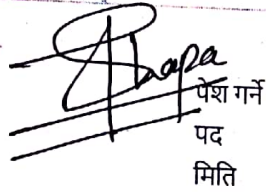 Thapa
पेश गर्ने
पद
मिति